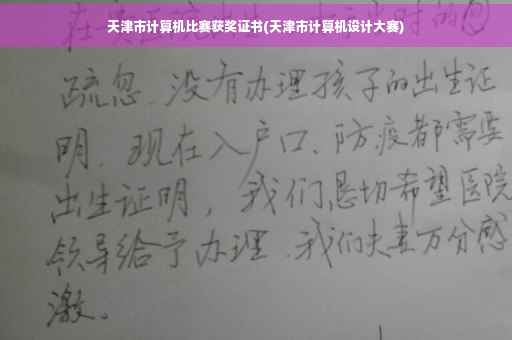 天津市计算机比赛获奖证书(天津市计算机设计大赛)
疏忽.没有办理孩子的出生证
明.现在入户口、防疫都需要
出生证明，我们恳切希望医院
领导给予办理.我们夫妻万分感
激。